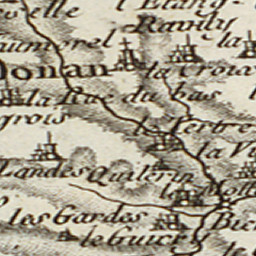 velle l'Etang
Ramly
aumorel la
Donan la Croix
la Rue du bas
grois le Tertre
la Vi
Landes Quilerin
la Mott
les Gardes Bie
le Guic
le